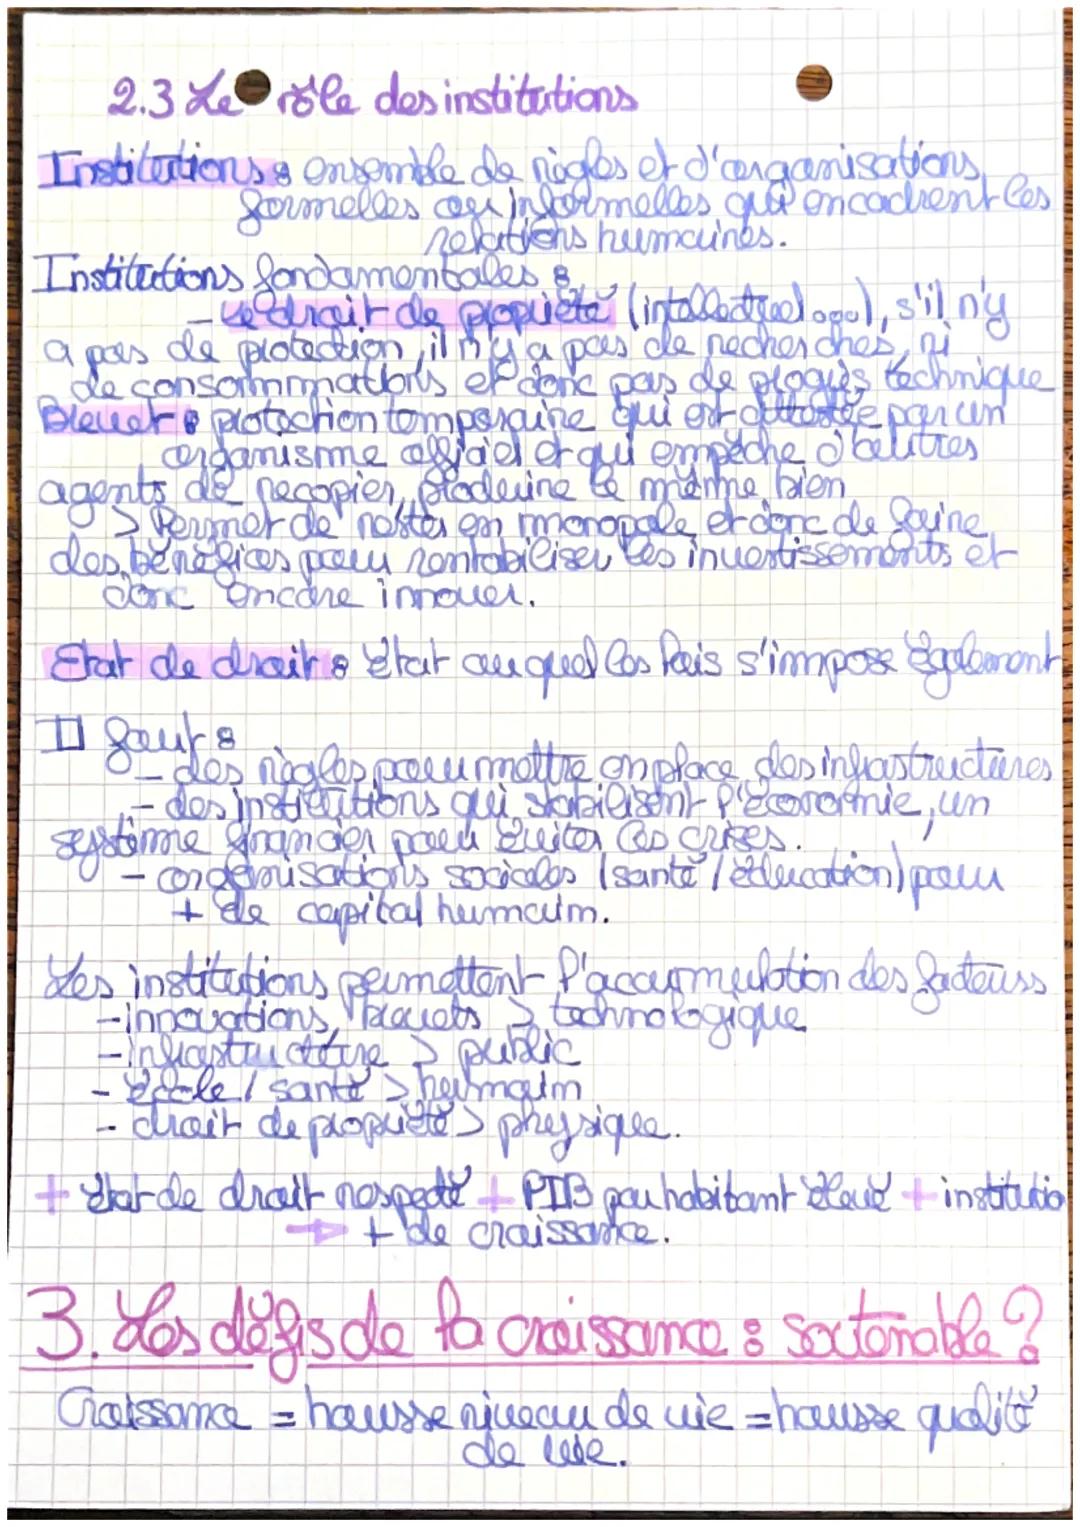 2.3 Le rôle des institutions
Institutions : ensemble de règles et d'organisations,
formelles ou informelles qui encadrent les
relations humaines.
Institutions fondamentales :
- Le droit de propriété (intellectuel...), s'il n'y
a pas de protection, il n'y a pas de recherches, ni
de consommmations et donc pas de progrès technique
Brevet : protection temporaine qui est attestée par un
organisme officiel et qui empêche d'autres
agents de recopier, produire le même bien
> Permet de rester en monopole et donc de faire
des bénéfices pour rentabiliser les investissements et
donc encore innover.
Etat de droit : état auquel les lois s'impose également
Il faut :
- des règles pour mettre en place des infrastructures
- des institutions qui stabilisent l'économie, un
système financier pour éviter les crises.
- organisations sociales (santé / éducation) pour
+ de capital humain.
Les institutions permettent l'accumulation des facteurs
- innovations, brevets > technologique
- infrastructure > public
- école / santé > humain
- droit de propriété > physique.
+ état de droit respecté + PIB par habitant élevé + institutio
→ + de croissance.
3. Les défis de la croissance : soutenable ?
Croissance = hausse niveau de vie = hausse qualité
de vie.